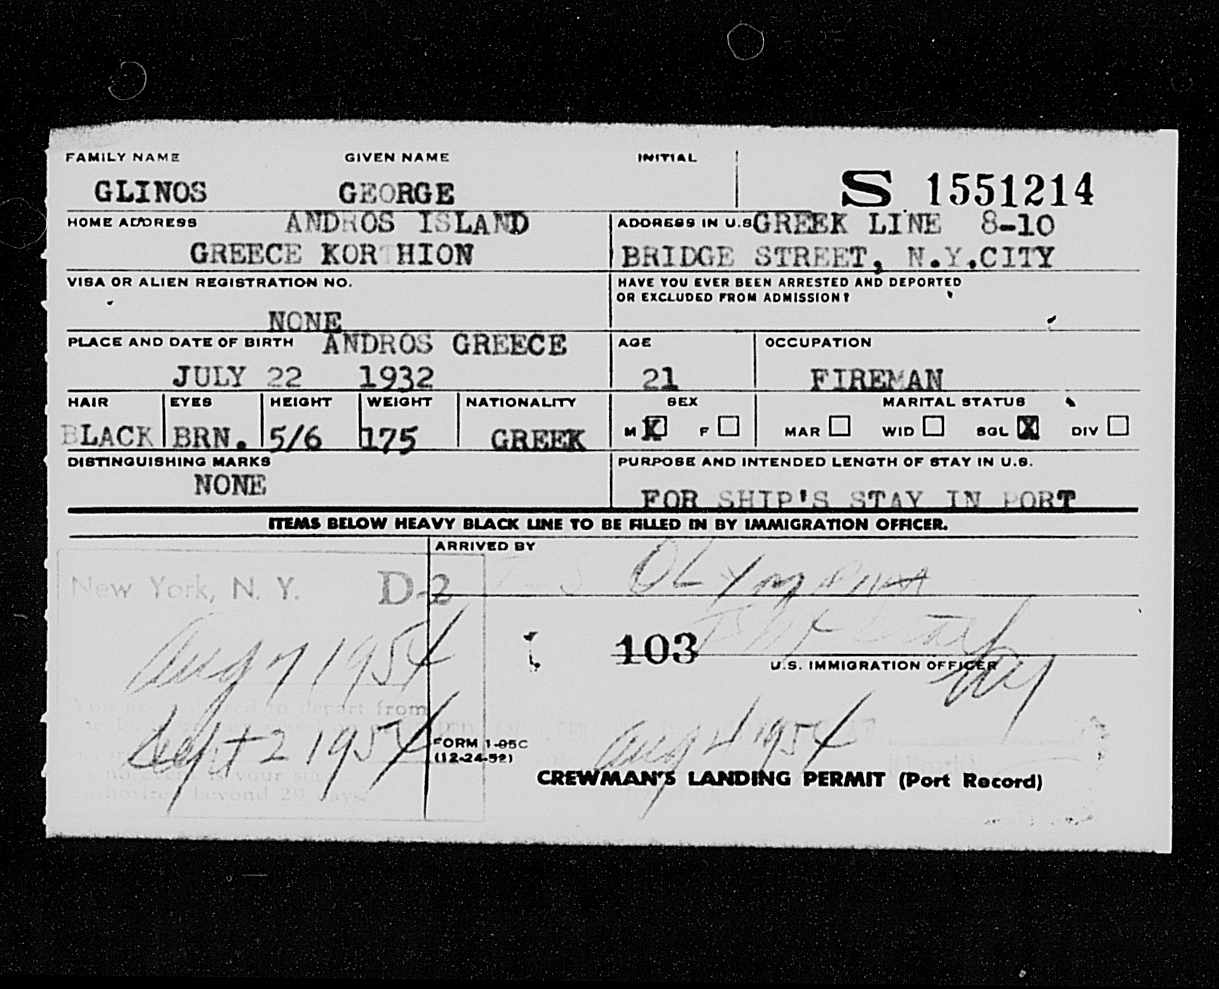 FAMILY NAME GIVEN NAME INITIAL
GLINOS GEORGE S 1551214
HOME ADDRESS ANDROS ISLAND
GREECE KORTHION
ADDRESS IN U.S. GREEK LINE 8-10
BRIDGE STREET, N.Y.CITY
VISA OR ALIEN REGISTRATION NO.
NONE
HAVE YOU EVER BEEN ARRESTED AND DEPORTED
OR EXCLUDED FROM ADMISSION?
PLACE AND DATE OF BIRTH ANDROS GREECE
JULY 22 1932
AGE
21
OCCUPATION
FIREMAN
HAIR EYES HEIGHT WEIGHT NATIONALITY
BLACK BRN. 5/6 175 GREEK
SEX
M X F
MARITAL STATUS
MAR WID SGL X DIV
DISTINGUISHING MARKS
NONE
PURPOSE AND INTENDED LENGTH OF STAY IN U.S.
FOR SHIP'S STAY IN PORT
ITEMS BELOW HEAVY BLACK LINE TO BE FILLED IN BY IMMIGRATION OFFICER.
ARRIVED BY
OLYMPIA
New York, N. Y. D-2
Aug 7 1954
103
U.S. IMMIGRATION OFFICER
depart from
Sept 2 1954
FORM I-95C
(12-24-52)
Aug 4 1954
beyond 29 days.
CREWMAN'S LANDING PERMIT (Port Record)